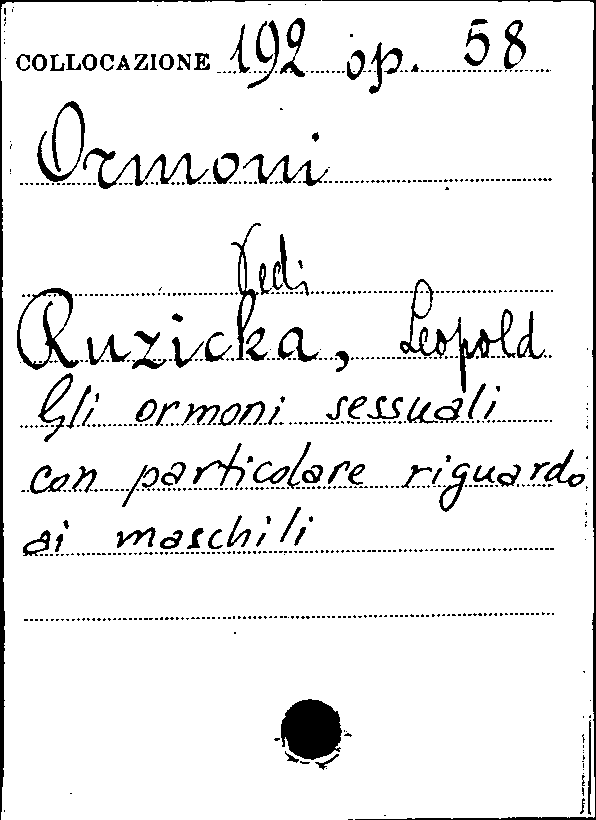 COLLOCAZIONE 192 op. 58
Ormoni
Vedi
Ruzicka, Leopold
Gli ormoni sessuali
con particolare riguardo
ai maschili